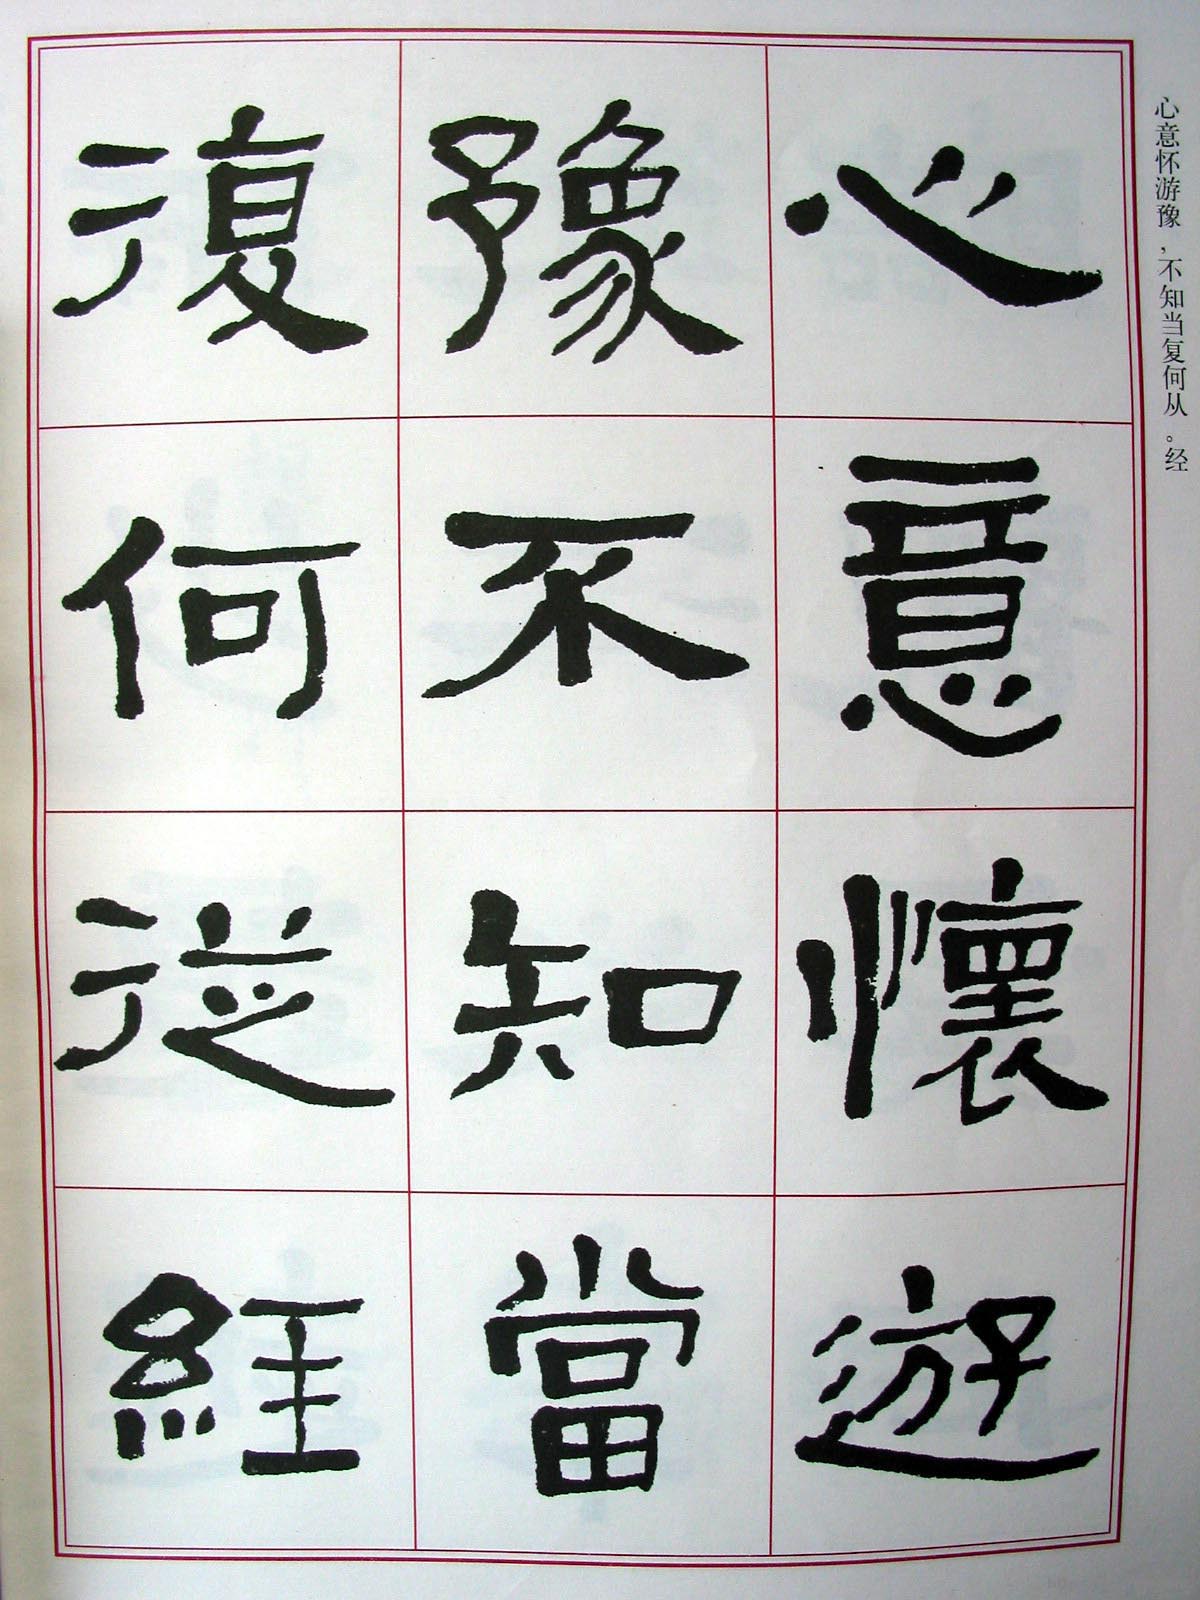 心意怀游豫,不知当复何从。经
心意懷遊
豫不知當
復何從經